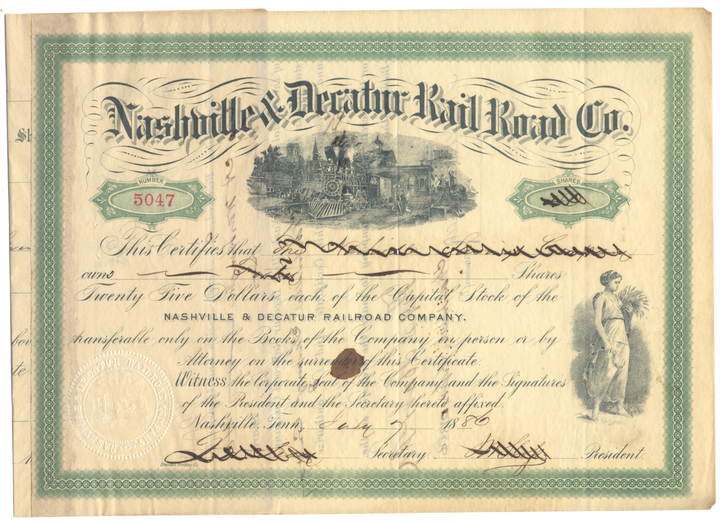 Nashville & Decatur Rail Road Co.
NUMBER
5047
SHARES
This Certifies that The
owns Shares
Twenty Five Dollars each of the Capital Stock of the
NASHVILLE & DECATUR RAILROAD COMPANY.
transferable only on the Books of the Company in person or by
Attorney on the surrender of this Certificate.
Witness the Corporate Seal of the Company and the Signatures
of the President and the Secretary hereto affixed.
Nashville, Tenn. July 7 1886
Secretary President